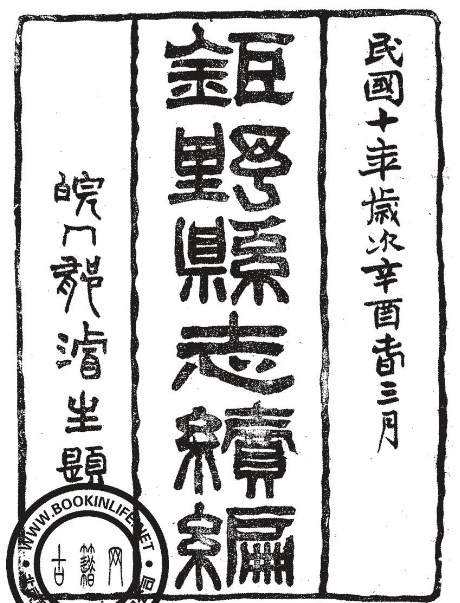 民國十年歲次辛酉春三月
鉅野縣志續編
皖門郁濬生題
WWW.BOOKINLIFE.NET
古籍网